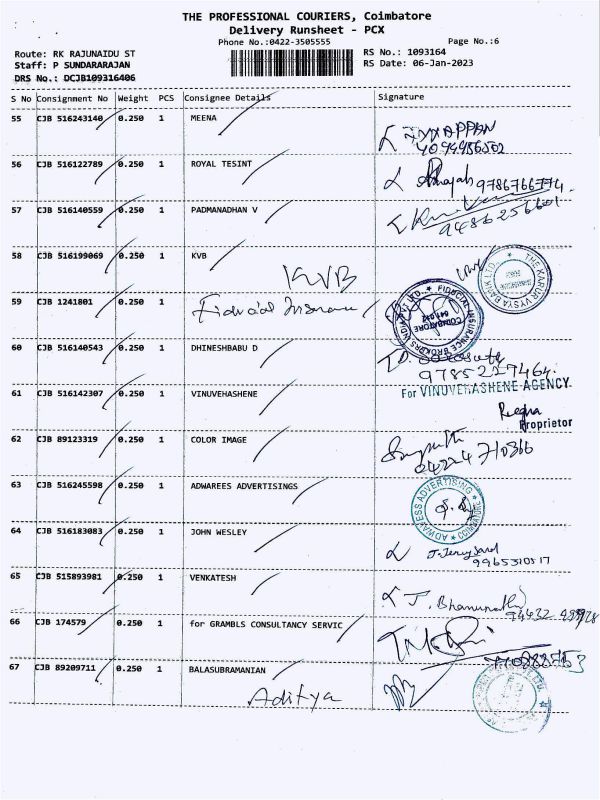 THE PROFESSIONAL COURIERS, Coimbatore
Delivery Runsheet - PCX
Phone No.:0422-3505555
Page No.:6
Route: RK RAJUNAIDU ST
RS No.: 1093164
Staff: P SUNDARARAJAN
RS Date: 06-Jan-2023
DRS No.: DCJB109316406
S No Consignment No Weight PCS Consignee Details Signature
55 CJB 516243140 0.250 1 MEENA
56 CJB 516122789 0.250 1 ROYAL TESINT
9786766774
57 CJB 516140559 0.250 1 PADMANADHAN V
9486256601
58 CJB 516199069 0.250 1 KVB
KVB
THE KARUR VYSYA BANK LTD.
59 CJB 1241801 0.250 1
FIDUCIAL INSURANCE BROKERS INDIA PVT LTD.
COIMBATORE
60 CJB 516140543 0.250 1 DHINESHBABU D
9785227464
61 CJB 516142307 0.250 1 VINUVEHASHENE
For VINUVEHASHENE AGENCY
Proprietor
62 CJB 89123319 0.250 1 COLOR IMAGE
63 CJB 516245598 0.250 1 ADWAREES ADVERTISINGS
ADWARESS ADVERTISING
COIMBATORE
64 CJB 516183083 0.250 1 JOHN WESLEY
65 CJB 515893981 0.250 1 VENKATESH
66 CJB 174579 0.250 1 for GRAMBLS CONSULTANCY SERVIC
67 CJB 89209711 0.250 1 BALASUBRAMANIAN
Aditya